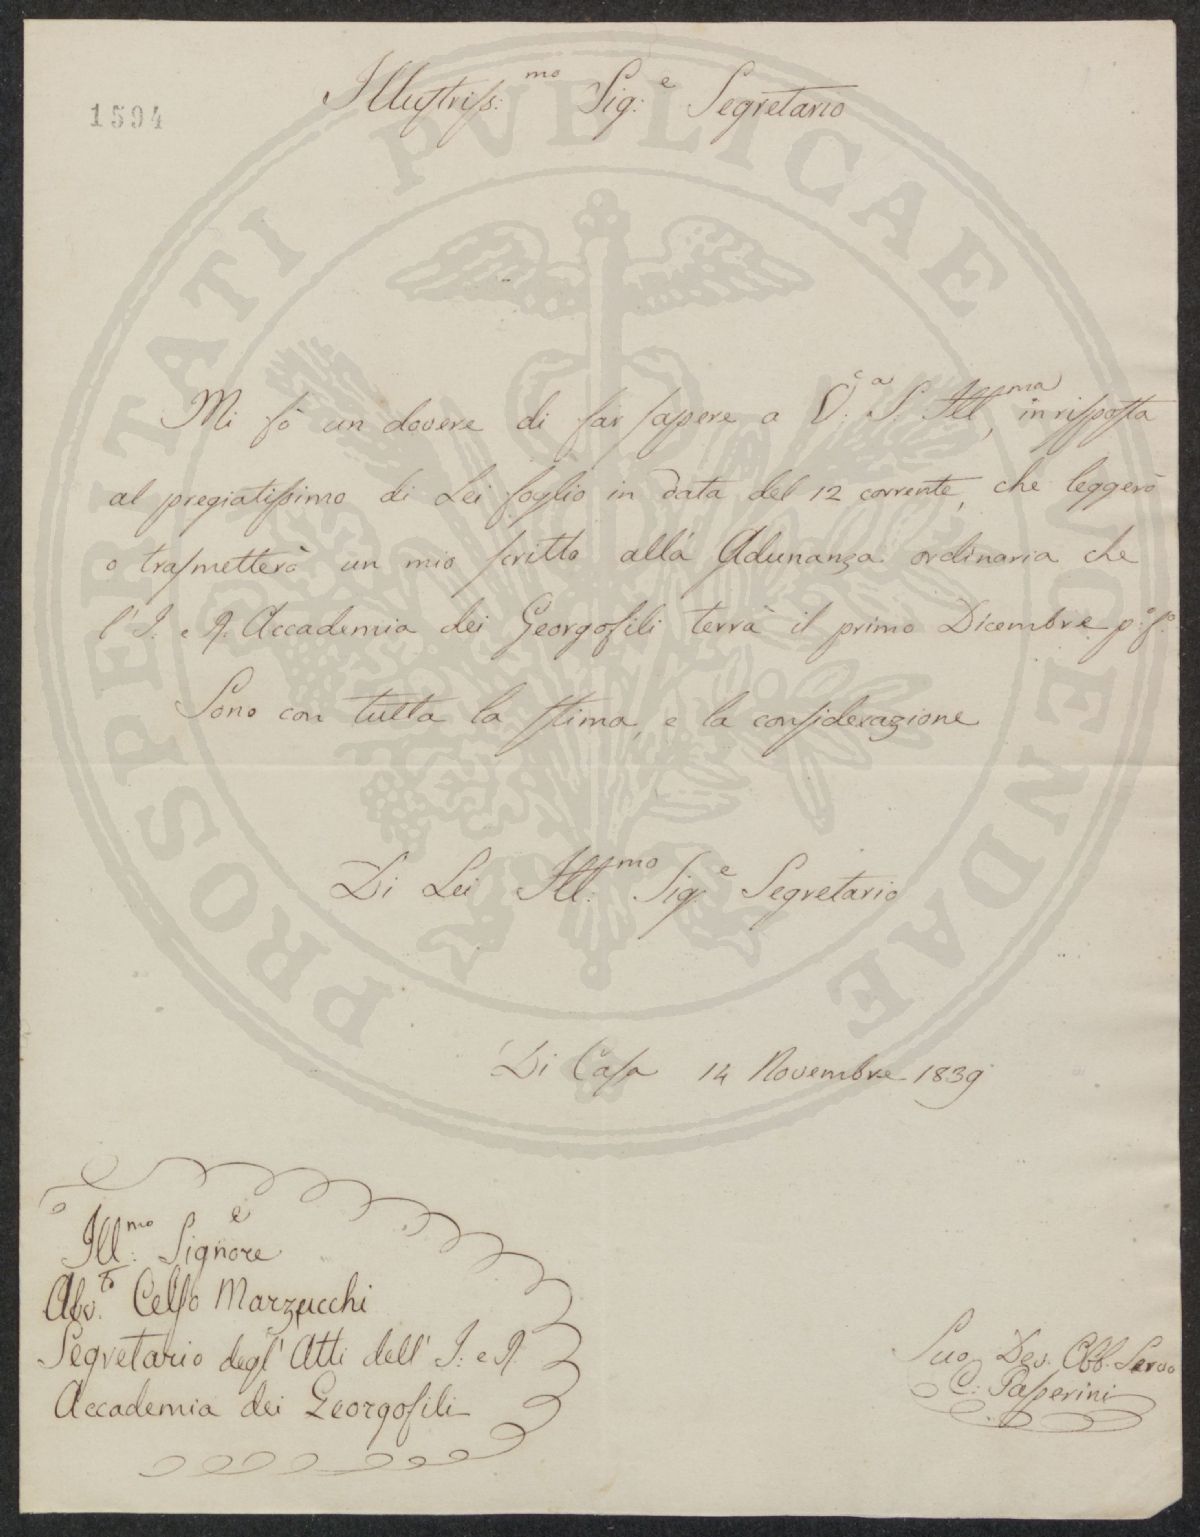 1594
Illustriss:mo Sig:e Segretario
Mi fò un dovere di far sapere a V:a S. Ill:ma, in risposta
al pregiatissimo di Lei foglio in data del 12 corrente, che leggerò
o trasmetterò un mio scritto alla Adunanza ordinaria che
l'I. e R. Accademia dei Georgofili terrà il primo Dicembre p:o f:o
Sono con tutta la stima, e la considerazione
Di Lei Ill:mo Sig:e Segretario
Di Casa 14 Novembre 1839
Ill:mo Signore
Avv:to Celso Marzucchi
Segretario degl'Atti dell'I: e R.
Accademia dei Georgofili
Suo Dev. Obb. Servo
C: Passerini
PROSPERITATI PVBLICAE AVGENDAE